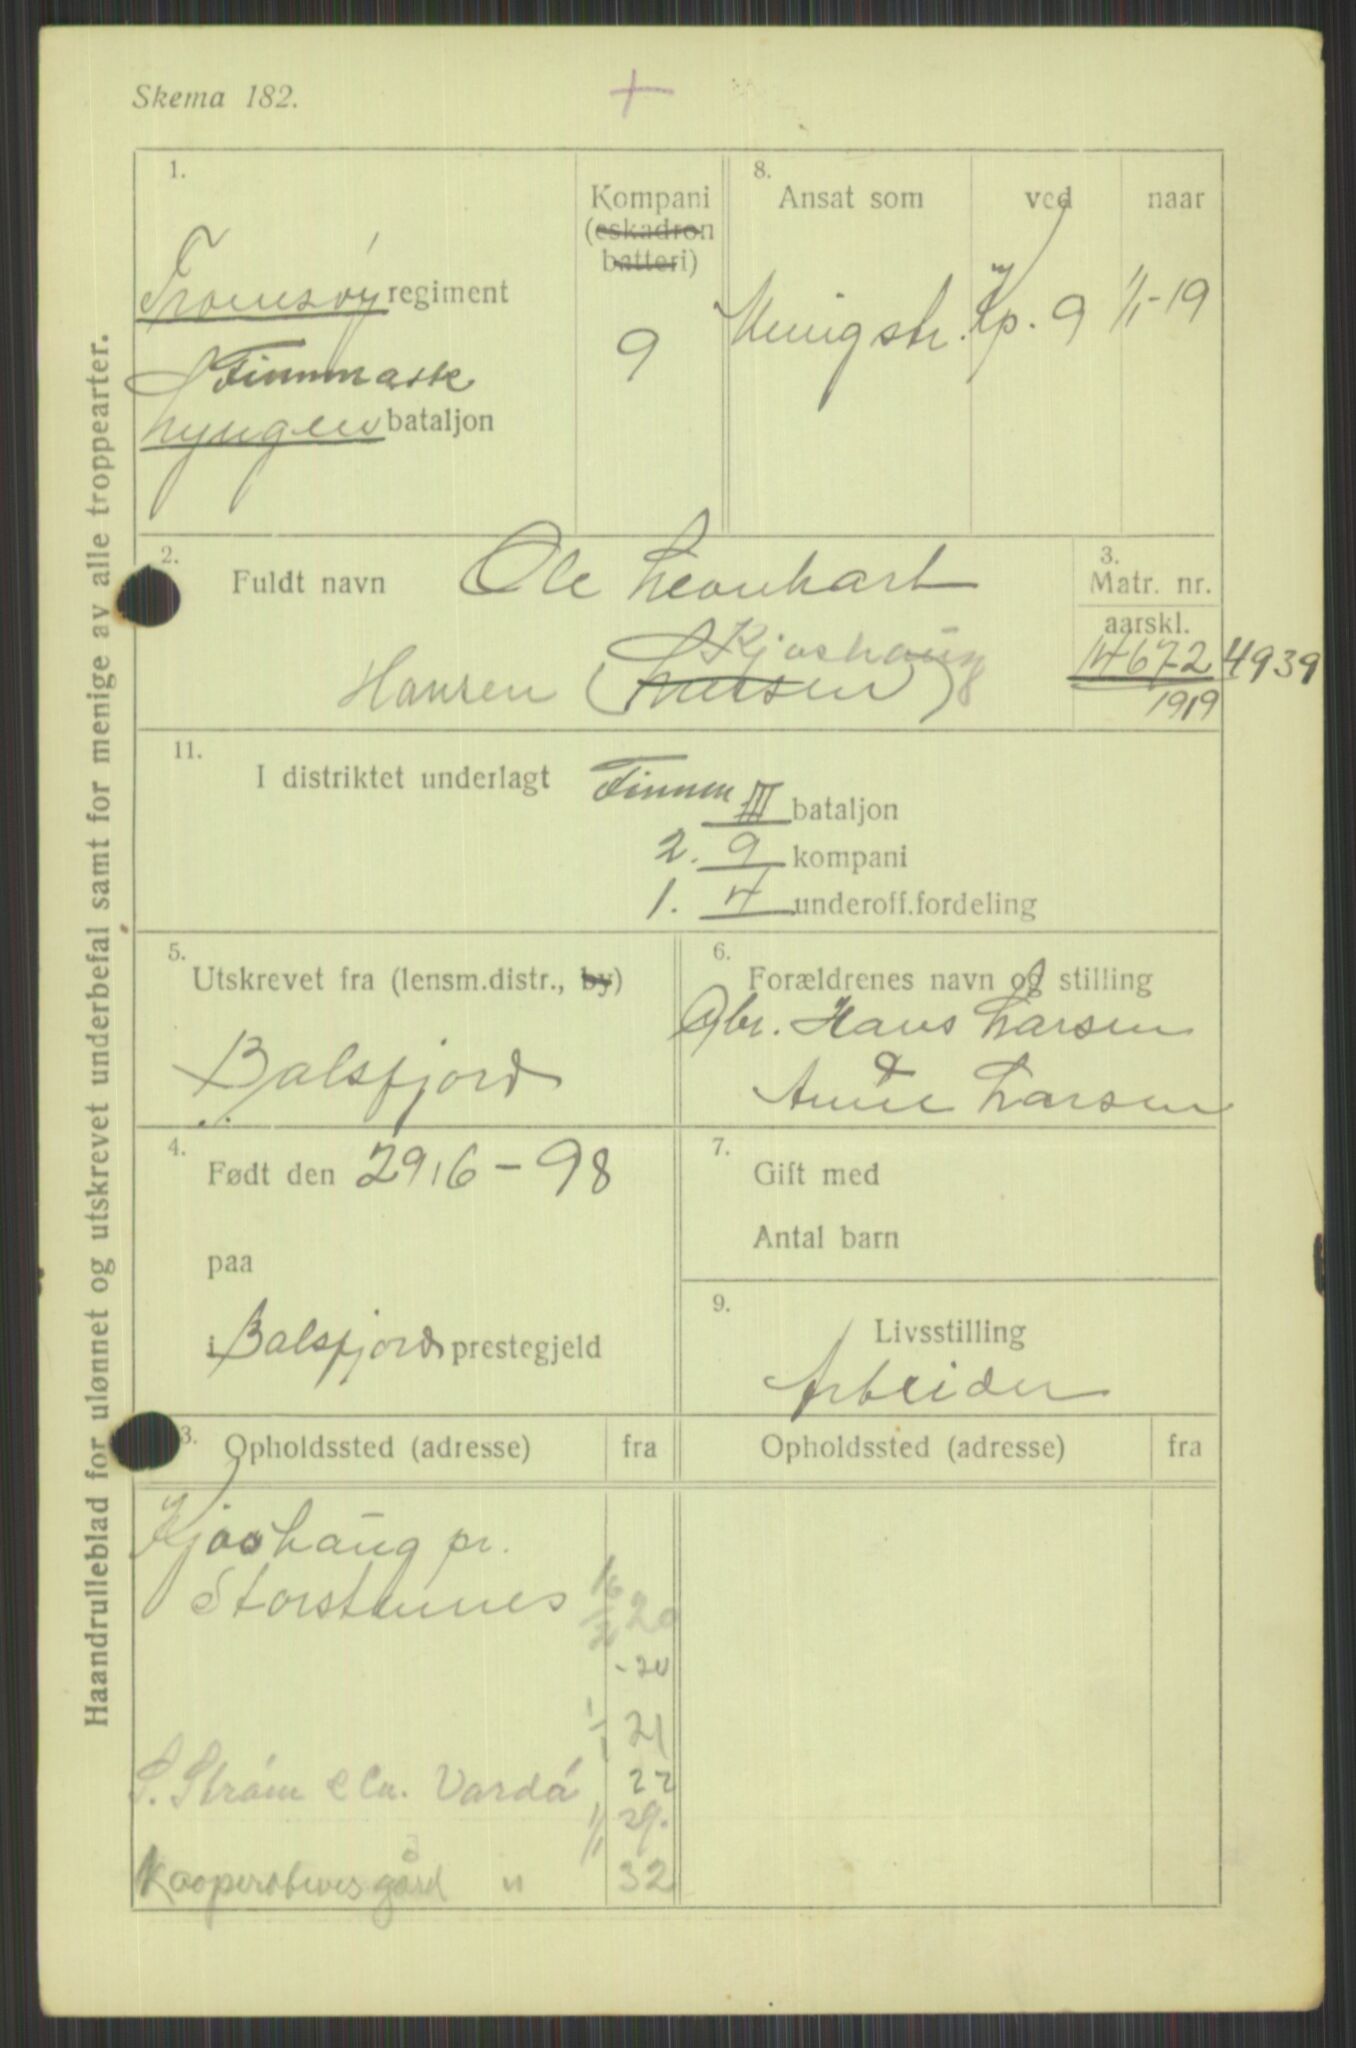 Skema 182.
+
Haandrulleblad for ulønnet og utskrevet underbefal samt for menige av alle troppearter.
1.
Tromsøy regiment
Finnmark
Lyngen bataljon
Kompani
(eskadron
batteri)
9
8.
Ansat som
ved
naar
Menig str. Kp. 9 1/1-19
2.
Fuldt navn Ole Leonhart
Kjoshaug
Hansen (Larsen)
3.
Matr. nr.
aarskl.
14672 4939
1919
11.
I distriktet underlagt Finnm III bataljon
2. 9 kompani
1. 4 underoff.fordeling
5.
Utskrevet fra (lensm.distr., by)
Balsfjord
6.
Forældrenes navn og stilling
Gbr. Hans Larsen
Anne Larsen
4.
Født den 29/6-98
paa
i Balsfjord prestegjeld
7.
Gift med
Antal barn
9.
Livsstilling
Arbeider
3. Opholdssted (adresse) fra
Opholdssted (adresse) fra
Kjoshaug pr.
Storstennes
20
-20
1/1 21
S. Strøm & Co. Vardø 22
1/1 29.
Kooperativesgård " 32